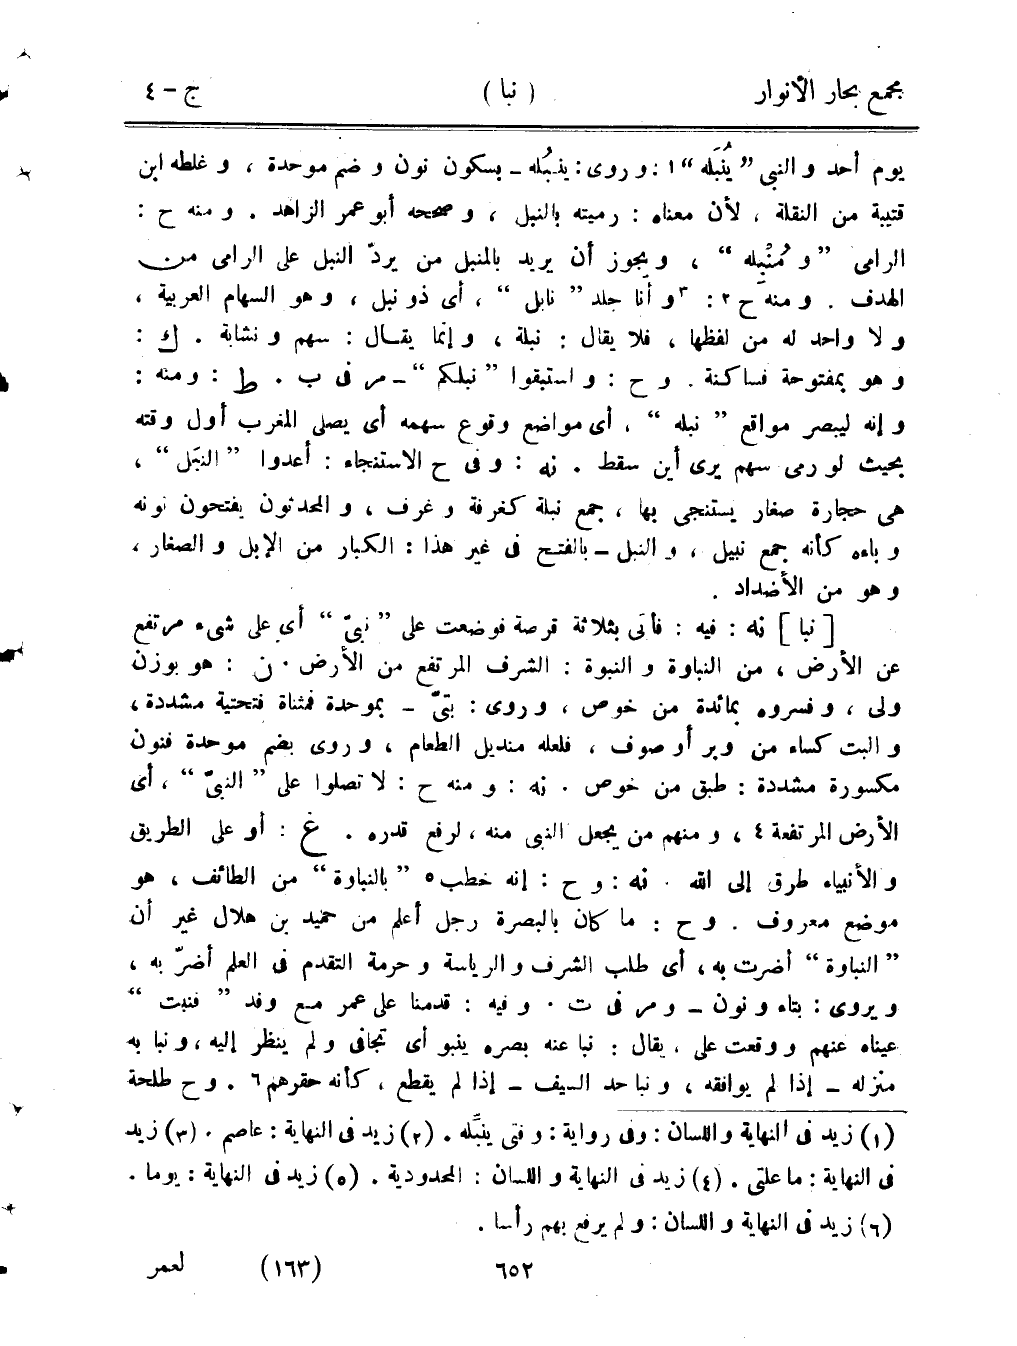 مجمع بحار الأنوار ( نبا ) ج – ٤
يوم أحد و النبي ” يُنَبِّله “ ١ : و روى : ينبُله – بسكون نون و ضم موحدة ، و غلطه ابن
قتيبة من النقلة ، لأن معناه : رميته بالنبل ، و صححه أبو عمر الزاهد . و منه ح :
الرامى ” و مُنْبِله “ ، و يجوز أن يريد بالمنبل من يردّ النبل على الرامى من
الهدف . و منه ح ٢ : ٣ و أنا جلد ” نابل “ ، أى ذو نبل ، و هو السهام العربية ،
و لا واحد له من لفظها ، فلا يقال : نبلة ، و إنما يقال : سهم و نشابة . ك :
و هو بمفتوحة فساكنة . و ح : و استبقوا ” نبلكم “ – مر فى ب . ط : و منه :
و إنه ليبصر مواقع ” نبله “ ، أى مواضع وقوع سهمه أى يصلى المغرب أول وقته
بحيث لو رمى سهم يرى أين سقط . نه : و فى ح الاستنجاء : أعدوا ” النبَل “ ،
هى حجارة صغار يستنجى بها ، جمع نبلة كغرفة و غرف ، و المحدثون يفتحون نونه
و باءه كأنه جمع نبيل ، و النبل – بالفتح فى غير هذا : الكبار من الإبل و الصغار ،
و هو من الأضداد .
[ نبا ] نه : فيه : فأتى بثلاثة قرصة فوضعت على ” نبىّ “ أى على شىء مرتفع
عن الأرض ، من النباوة و النبوة : الشرف المرتفع من الأرض . ن : هو بوزن
ولى ، و فسروه بمائدة من خوص ، و روى : بتىّ – بموحدة فمثناة فتحتية مشددة ،
و البت كساء من وبر أو صوف ، فلعله منديل الطعام ، و روى بضم موحدة فنون
مكسورة مشددة : طبق من خوص . نه : و منه ح : لا تصلوا على ” النبىّ “ ، أى
الأرض المرتفعة ٤ ، و منهم من يجعل النبى منه ، لرفع قدره . غ : أو على الطريق
و الأنبياء طرق إلى الله . نه : و ح : إنه خطب ٥ ” بالنباوة “ من الطائف ، هو
موضع معروف . و ح : ما كان بالبصرة رجل أعلم من حميد بن هلال غير أن
” النباوة “ أضرت به ، أى طلب الشرف و الرياسة و حرمة التقدم فى العلم أضرّ به ،
و يروى : بتاء و نون – و مر فى ت . و فيه : قدمنا على عمر مع وفد ” فنبت “
عيناه عنهم و وقعت على ، يقال : نبا عنه بصره ينبو أى تجافى و لم ينظر إليه ، و نبا به
منزله – إذا لم يوافقه ، و نبا حد السيف – إذا لم يقطع ، كأنه حقرهم ٦ . و ح طلحة
(١) زيد فى النهاية و اللسان : وفى رواية : و فتى ينبِّله . (٢) زيد فى النهاية : عاصم . (٣) زيد
فى النهاية : ما علتى . (٤) زيد فى النهاية و اللسان : المحدودية . (٥) زيد فى النهاية : يوما .
(٦) زيد فى النهاية و اللسان : و لم يرفع بهم رأسا .
٦٥٢ (١٦٣) لعمر